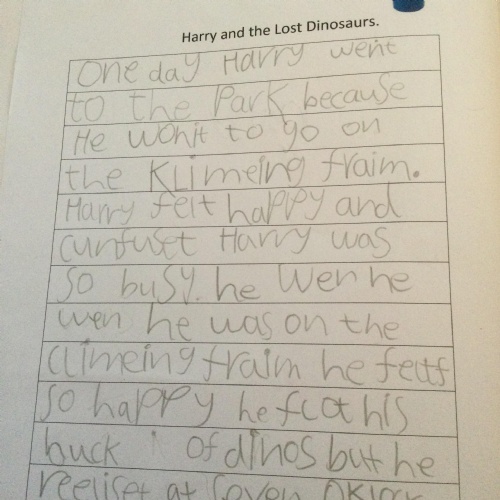 Harry and the Lost Dinosaurs.
One day Harry went
to the Park because
He wonit to go on
the Klimeing fraim.
Harry felt happy and
cunfuset Harry was
so busy. he Wen he
wen he was on the
climeing fraim he felt
so happy he his
buck of dinos but he
reeliset at